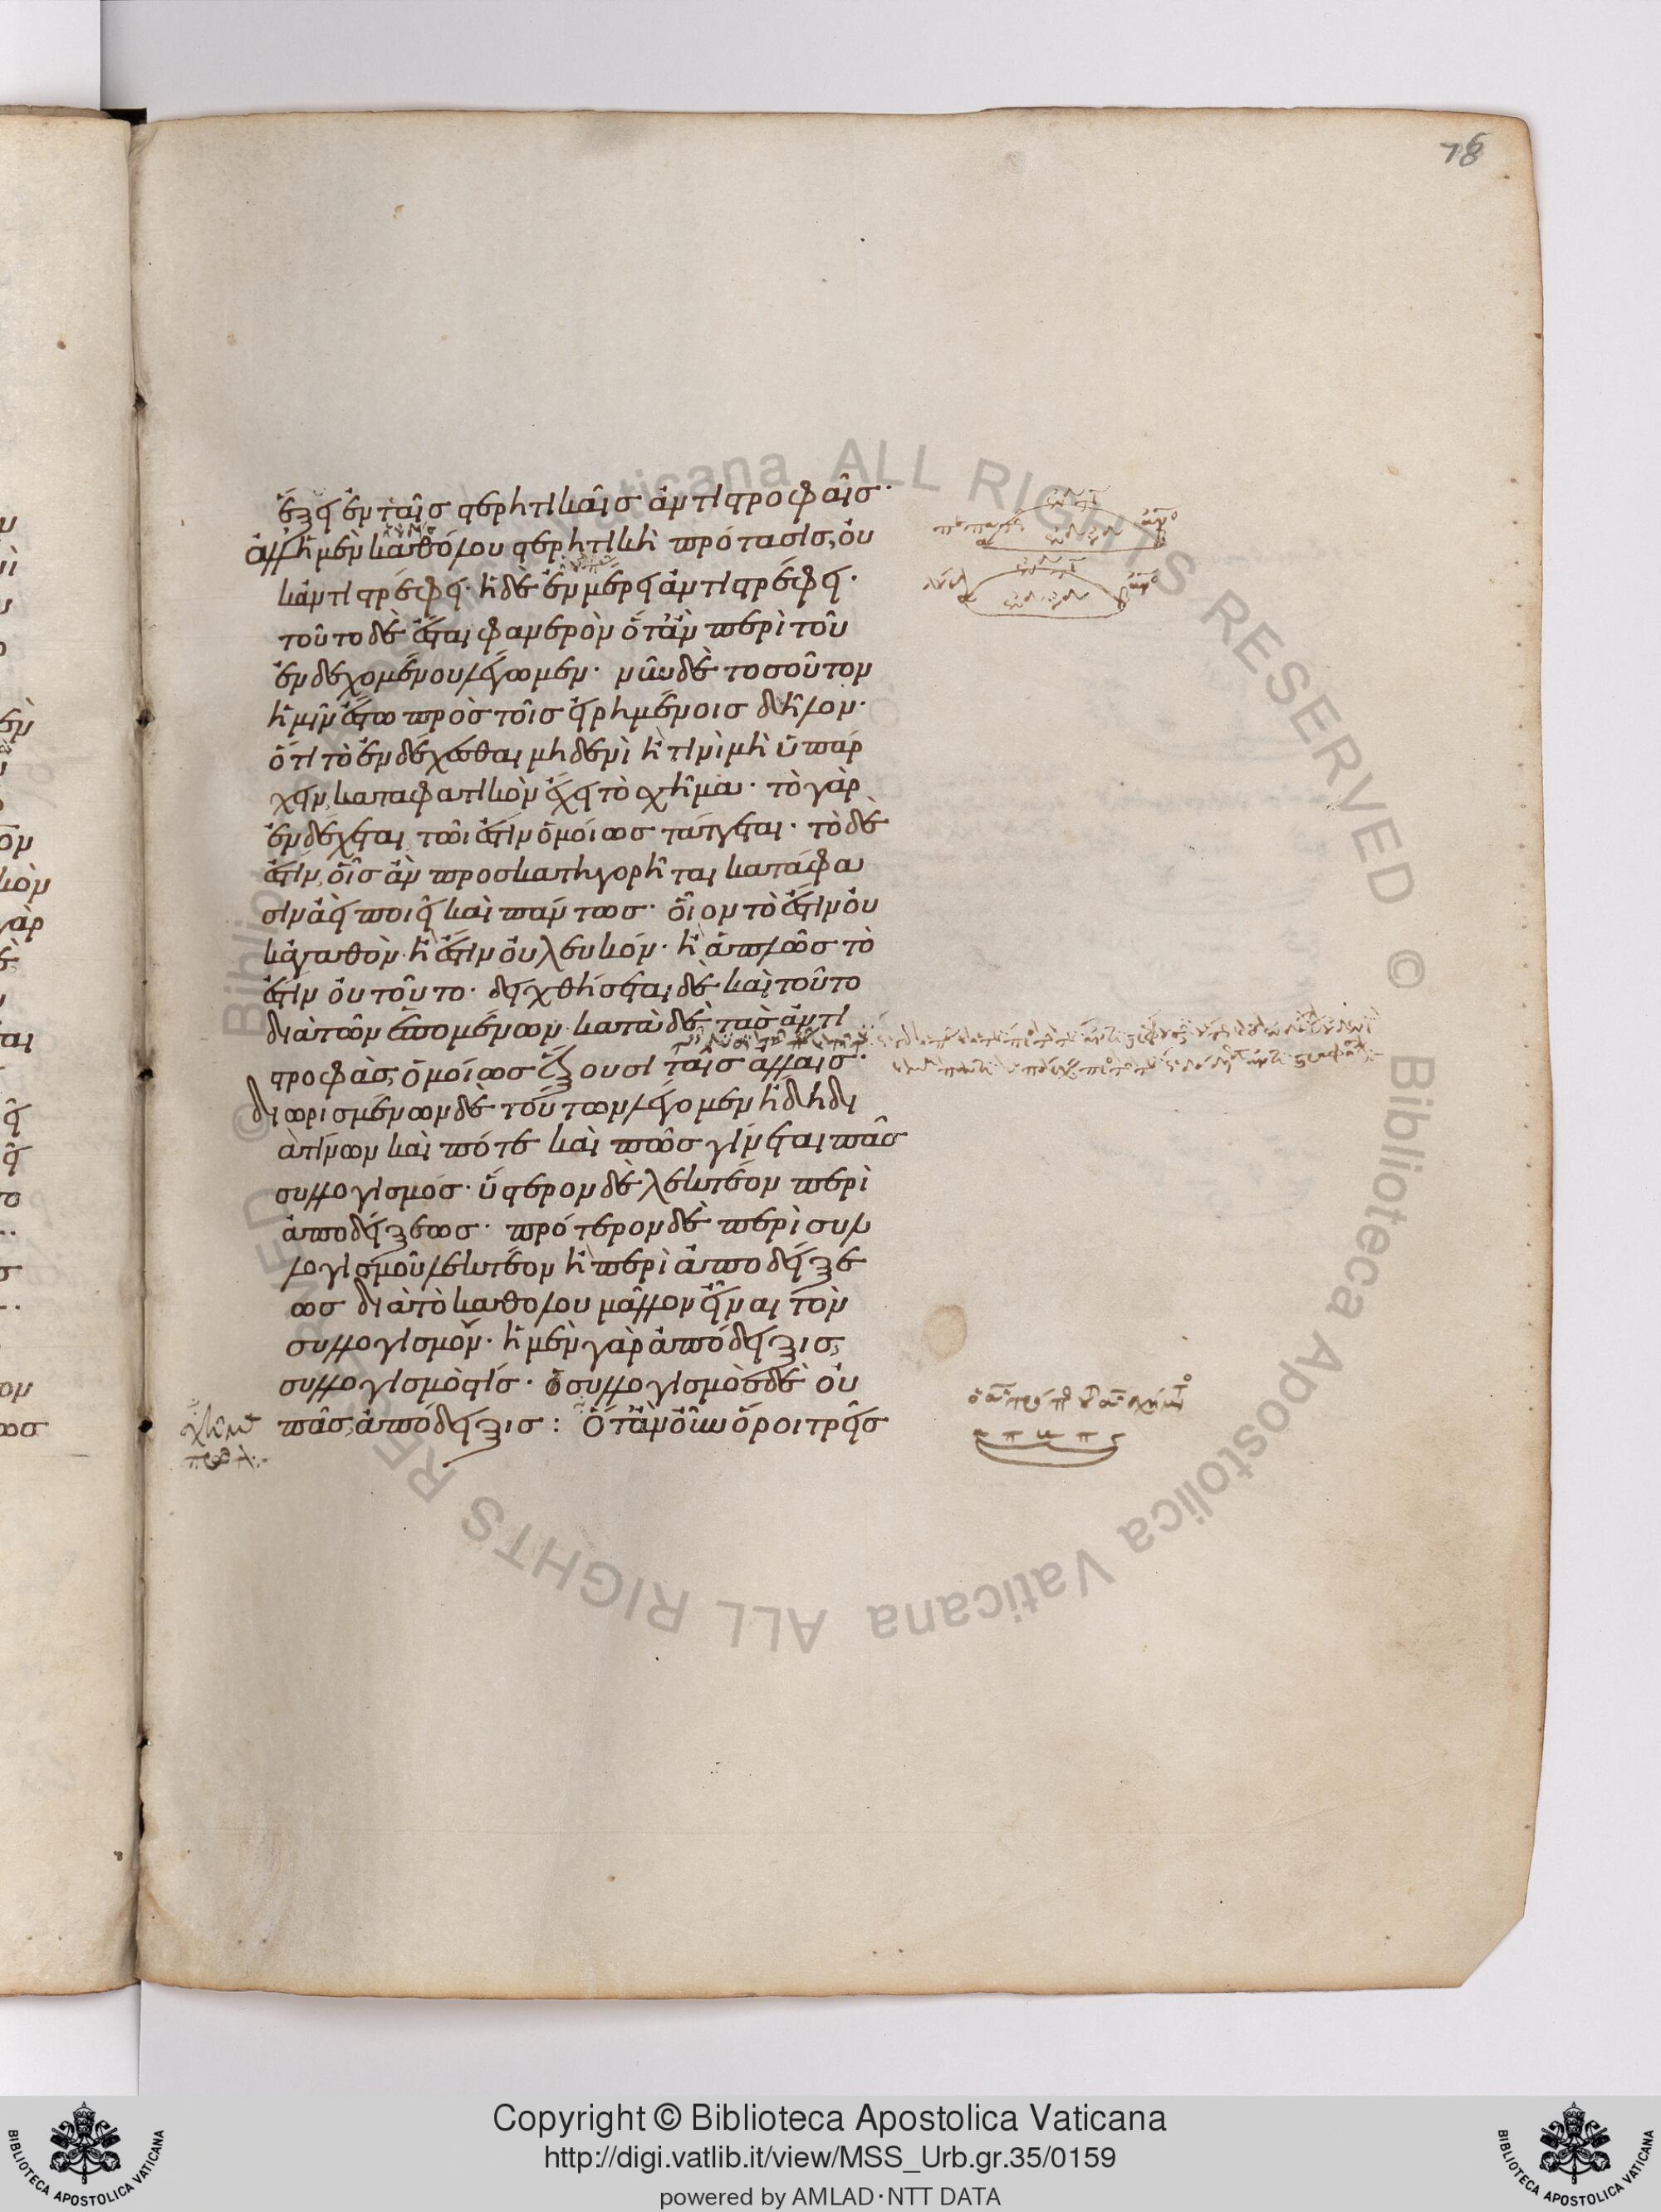 78
ἕξει ἐν ταῖς στερητικαῖς ἀντιστροφαῖς·
ἀλλ' ἡ μὲν καθόλου στερητικὴ πρότασις, οὐ
κ ἀντιστρέφει· ἡ δὲ ἐν μέρει ἀντιστρέφει·
τοῦτο δὲ ἔσται φανερὸν ὅταν περὶ τοῦ
ἐνδεχομένου λέγωμεν· νῦν δὲ τοσοῦτον
ἡμῖν ἔστω πρὸς τοῖς εἰρημένοις δῆλον·
ὅτι τὸ ἐνδέχεσθαι μηδενὶ ἢ τινὶ μὴ ὑπάρ
χειν, καταφατικὸν ἔχει τὸ σχῆμα· τὸ γὰρ
ἐνδέχεται, τῶι ἔστιν ὁμοίως τάττεται· τὸ δὲ
ἔστιν, οἷς ἂν προσκατηγορῆται κατάφα
σιν ἀεὶ ποιεῖ καὶ πάντως· οἷον τὸ ἔστιν οὐ
κ ἀγαθὸν· ἢ ἔστιν οὐ λευκόν· ἢ ἁπλῶς τὸ
ἔστιν οὐ τοῦτο· δειχθήσεται δὲ καὶ τοῦτο
διὰ τῶν ἑπομένων· κατὰ δὲ τὰς ἀντι
στροφὰς, ὁμοίως ἕξουσι ταῖς ἄλλαις·
διωρισμένων δὲ τούτων λέγομεν ἤδη δι
ὰ τίνων καὶ πότε καὶ πῶς γίνεται πᾶς
συλλογισμός· ὕστερον δὲ λεκτέον περὶ
ἀποδείξεως· πρότερον δὲ περὶ συλ
λογισμοῦ λεκτέον ἢ περὶ ἀποδείξε
ως διὰ τὸ καθόλου μᾶλλον εἶναι τὸν
συλλογισμόν· ἡ μὲν γὰρ ἀπόδειξις,
συλλογισμός τίς· ὁ συλλογισμὸς δὲ οὐ
πᾶς, ἀπόδειξις: Ὅταν οὖν ὅροι τρεῖς
Copyright © Biblioteca Apostolica Vaticana
http://digi.vatlib.it/view/MSS_Urb.gr.35/0159
powered by AMLAD·NTT DATA
BIBLIOTECA APOSTOLICA VATICANA
BIBLIOTECA APOSTOLICA VATICANA